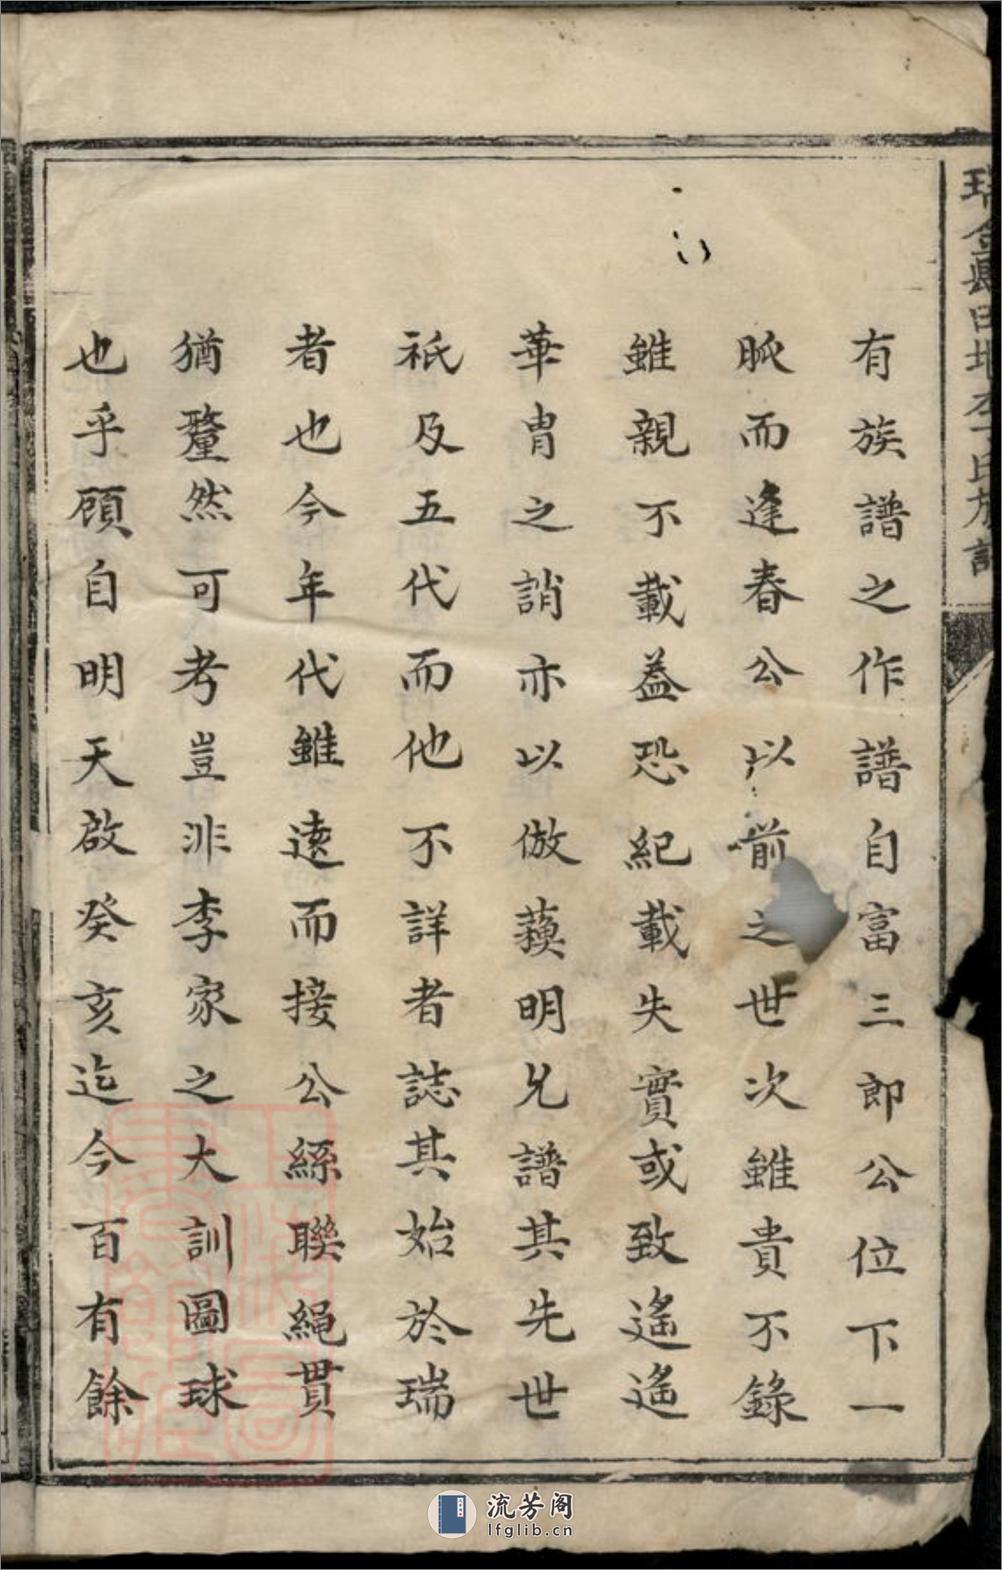 瑞金長田北李氏族譜
有族譜之作譜自富三郎公位下一
脈而逢春公以前之世次雖貴不錄
雖親不載葢恐紀載失實或致遙遙
華胄之誚亦以倣蘓明兄譜其先世
祇及五代而他不詳者誌其始於瑞
者也今年代雖遠而接公絲聯繩貫
猶釐然可考豈非李家之大訓圖球
也乎顧自明天啟癸亥迄今百有餘
流芳阁
lfglib.cn